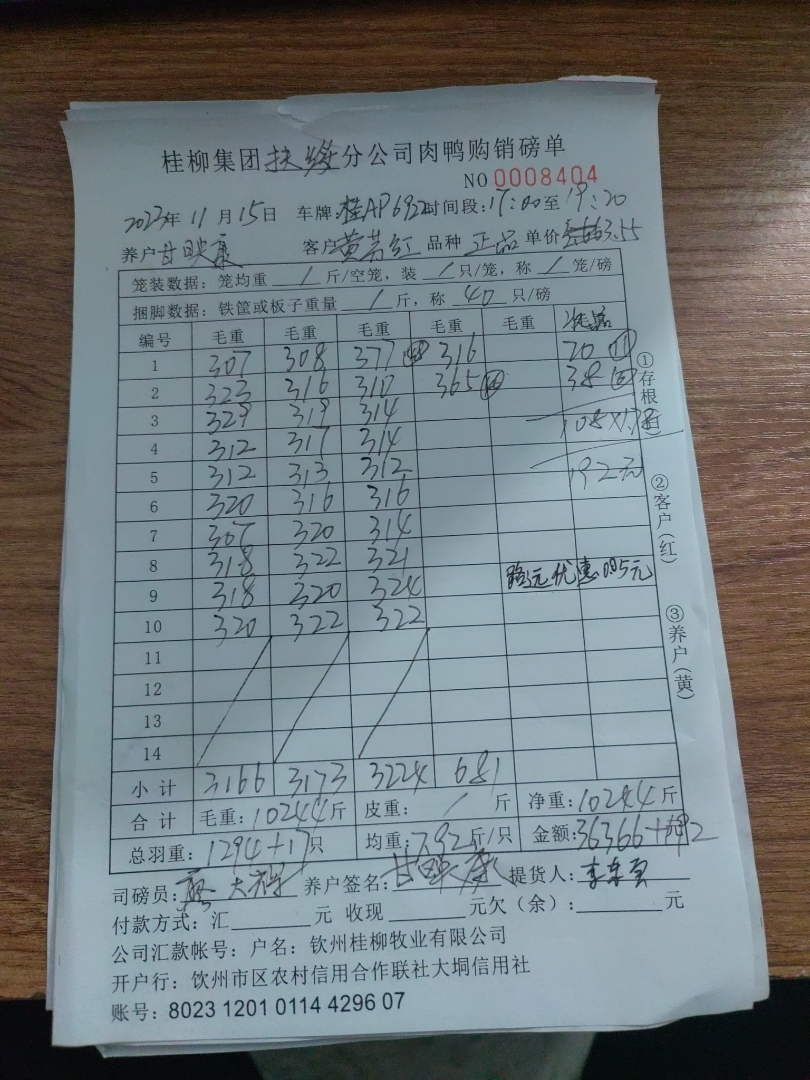 桂柳集团扶绥分公司肉鸭购销磅单
NO 0008404
2023年 11月15日 车牌:桂AP6922时间段:17:00至19:20
养户甘映康 客户黄芳红 品种 正品 单价 3.55
笼装数据: 笼均重 / 斤/空笼, 装 / 只/笼, 称 / 笼/磅
捆脚数据: 铁筐或板子重量 / 斤, 称 40 只/磅
编号 毛重 毛重 毛重 毛重 毛重
1 307 308 377 48 316 20 11
2 323 316 310 365 38
3 329 319 314 108×1.78
4 312 317 314
5 312 313 312 192元
6 320 316 316
7 307 320 314
8 318 322 321
9 318 320 324 路远优惠0.05元
10 320 322 322
11
12
13
14
小计 3166 3173 3224 681
合计 毛重:10244斤 皮重: / 斤 净重:10244斤
总羽重:1294+17只 均重:7.92斤/只 金额:36366+192
司磅员: 养户签名:甘映康 提货人:
付款方式: 汇 元 收现 元欠(余): 元
公司汇款帐号: 户名: 钦州桂柳牧业有限公司
开户行: 钦州市区农村信用合作联社大垌信用社
账号: 8023 1201 0114 4296 07
①存根(白)
②客户(红)
③养户(黄)